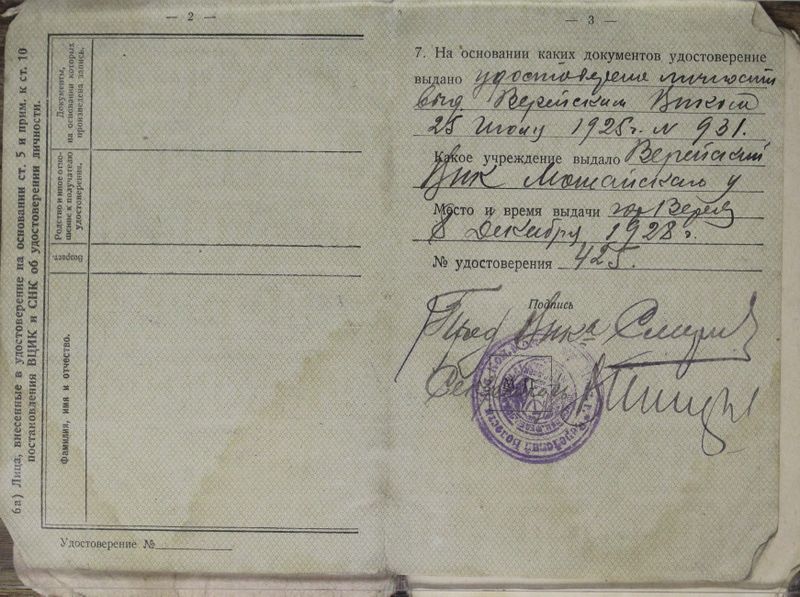 — 2 —
6а) Лица, внесенные в удостоверение на основании ст. 5 и прим. к ст. 10
постановления ВЦИК и СНК об удостоверении личности.
Документы,
на основании которых
произведена запись.
Родство и иное отно-
шение к получателю
удостоверения.
Возраст.
Фамилия, имя и отчество.
Удостоверение №
— 3 —
7. На основании каких документов удостоверение
выдано удостоверение личности
выд Верейским Виком
25 Июлу 1925 г. № 931.
Какое учреждение выдало Верейский
Вик Можайского у
Место и время выдачи гор Верея
8 Декабря 1928 г.
№ удостоверения 425.
Подпись
Пред Вика
Секретарь
М. П.